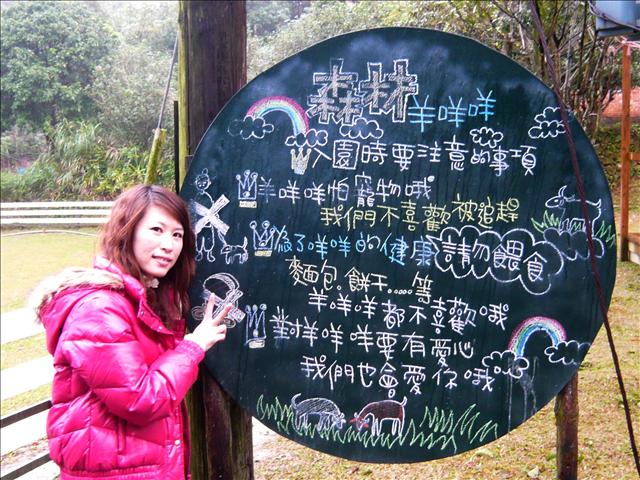 森林羊咩咩
入園時要注意的事項
羊咩咩怕寵物哦
我們不喜歡被追趕
為了羊咩咩的健康請勿餵食
麵包.餅干.....等
羊咩咩都不喜歡哦
對羊咩咩要有愛心
我們也會愛你哦